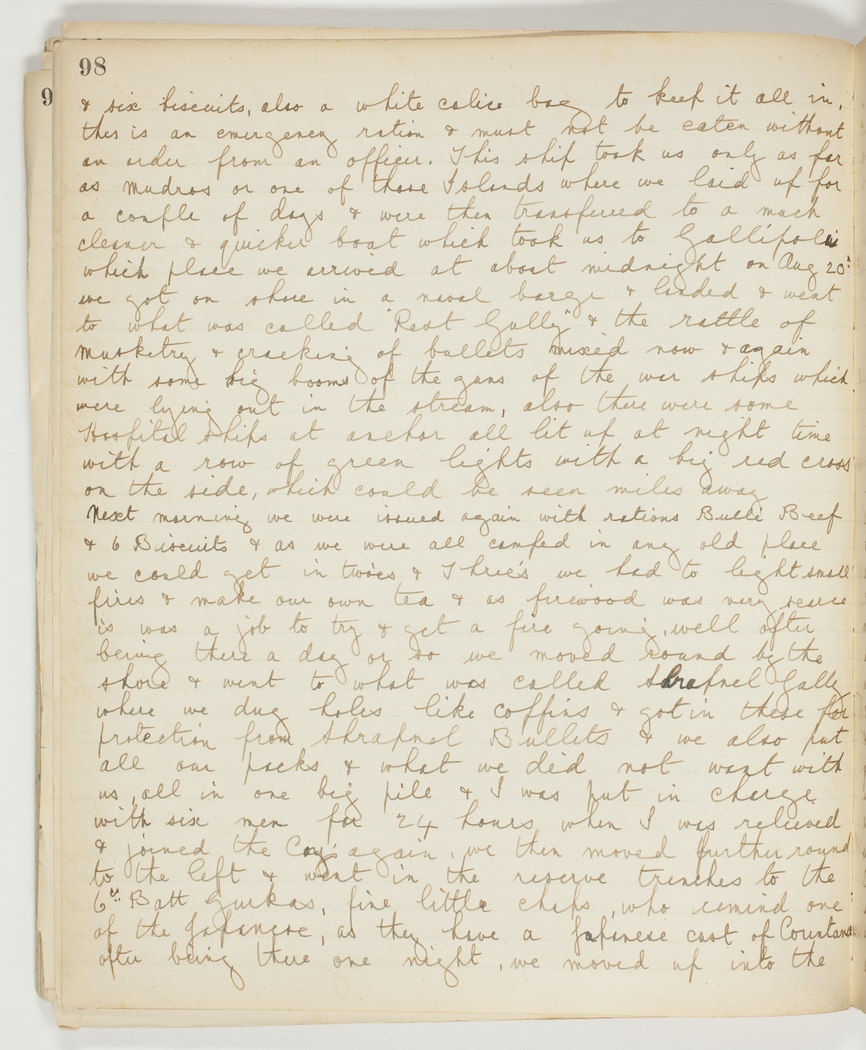 98
9
& six biscuits, also a white calico bag to keep it all in,
this is an emergency ration & must not be eaten without
an order from an officer. This ship took us only as far
as Mudros or one of those Islands where we laid up for
a couple of days & were then transferred to a much
cleaner & quicker boat which took us to Gallipoli
which place we arrived at about midnight on Aug 20th
we got on shore in a naval barge & landed & went
to what was called "Rest Gully" & the rattle of
musketry & cracking of bullets mixed now & again
with some big booms of the guns of the war ships which
were lying out in the stream, also there were some
Hospital ships at anchor all lit up at night time
with a row of green lights with a big red cross
on the side, which could be seen miles away
Next morning we were issued again with rations Bulli Beef
& 6 Biscuits & as we were all camped in any old place
we could get in twoes & Three's we had to light small
fires & make our own tea & as firewood was very scarce
is was a job to try & get a fire going, well after
being there a day or so we moved round by the
shore & went to what was called Shrapnel Gully
where we dug holes like coffins & got in these for
protection from Shrapnel Bullets & we also put
all our packs & what we did not want with
us, all in one big pile & I was put in charge
with six men for 24 hours when I was relieved
& joined the Coy. again, we then moved further round
to the left & went in the reserve trenches to the
6th Batt Gurkas, fine little chaps, who remind one
of the Japanese, as they have a Japinese cast of
after being there one night, we moved up into the